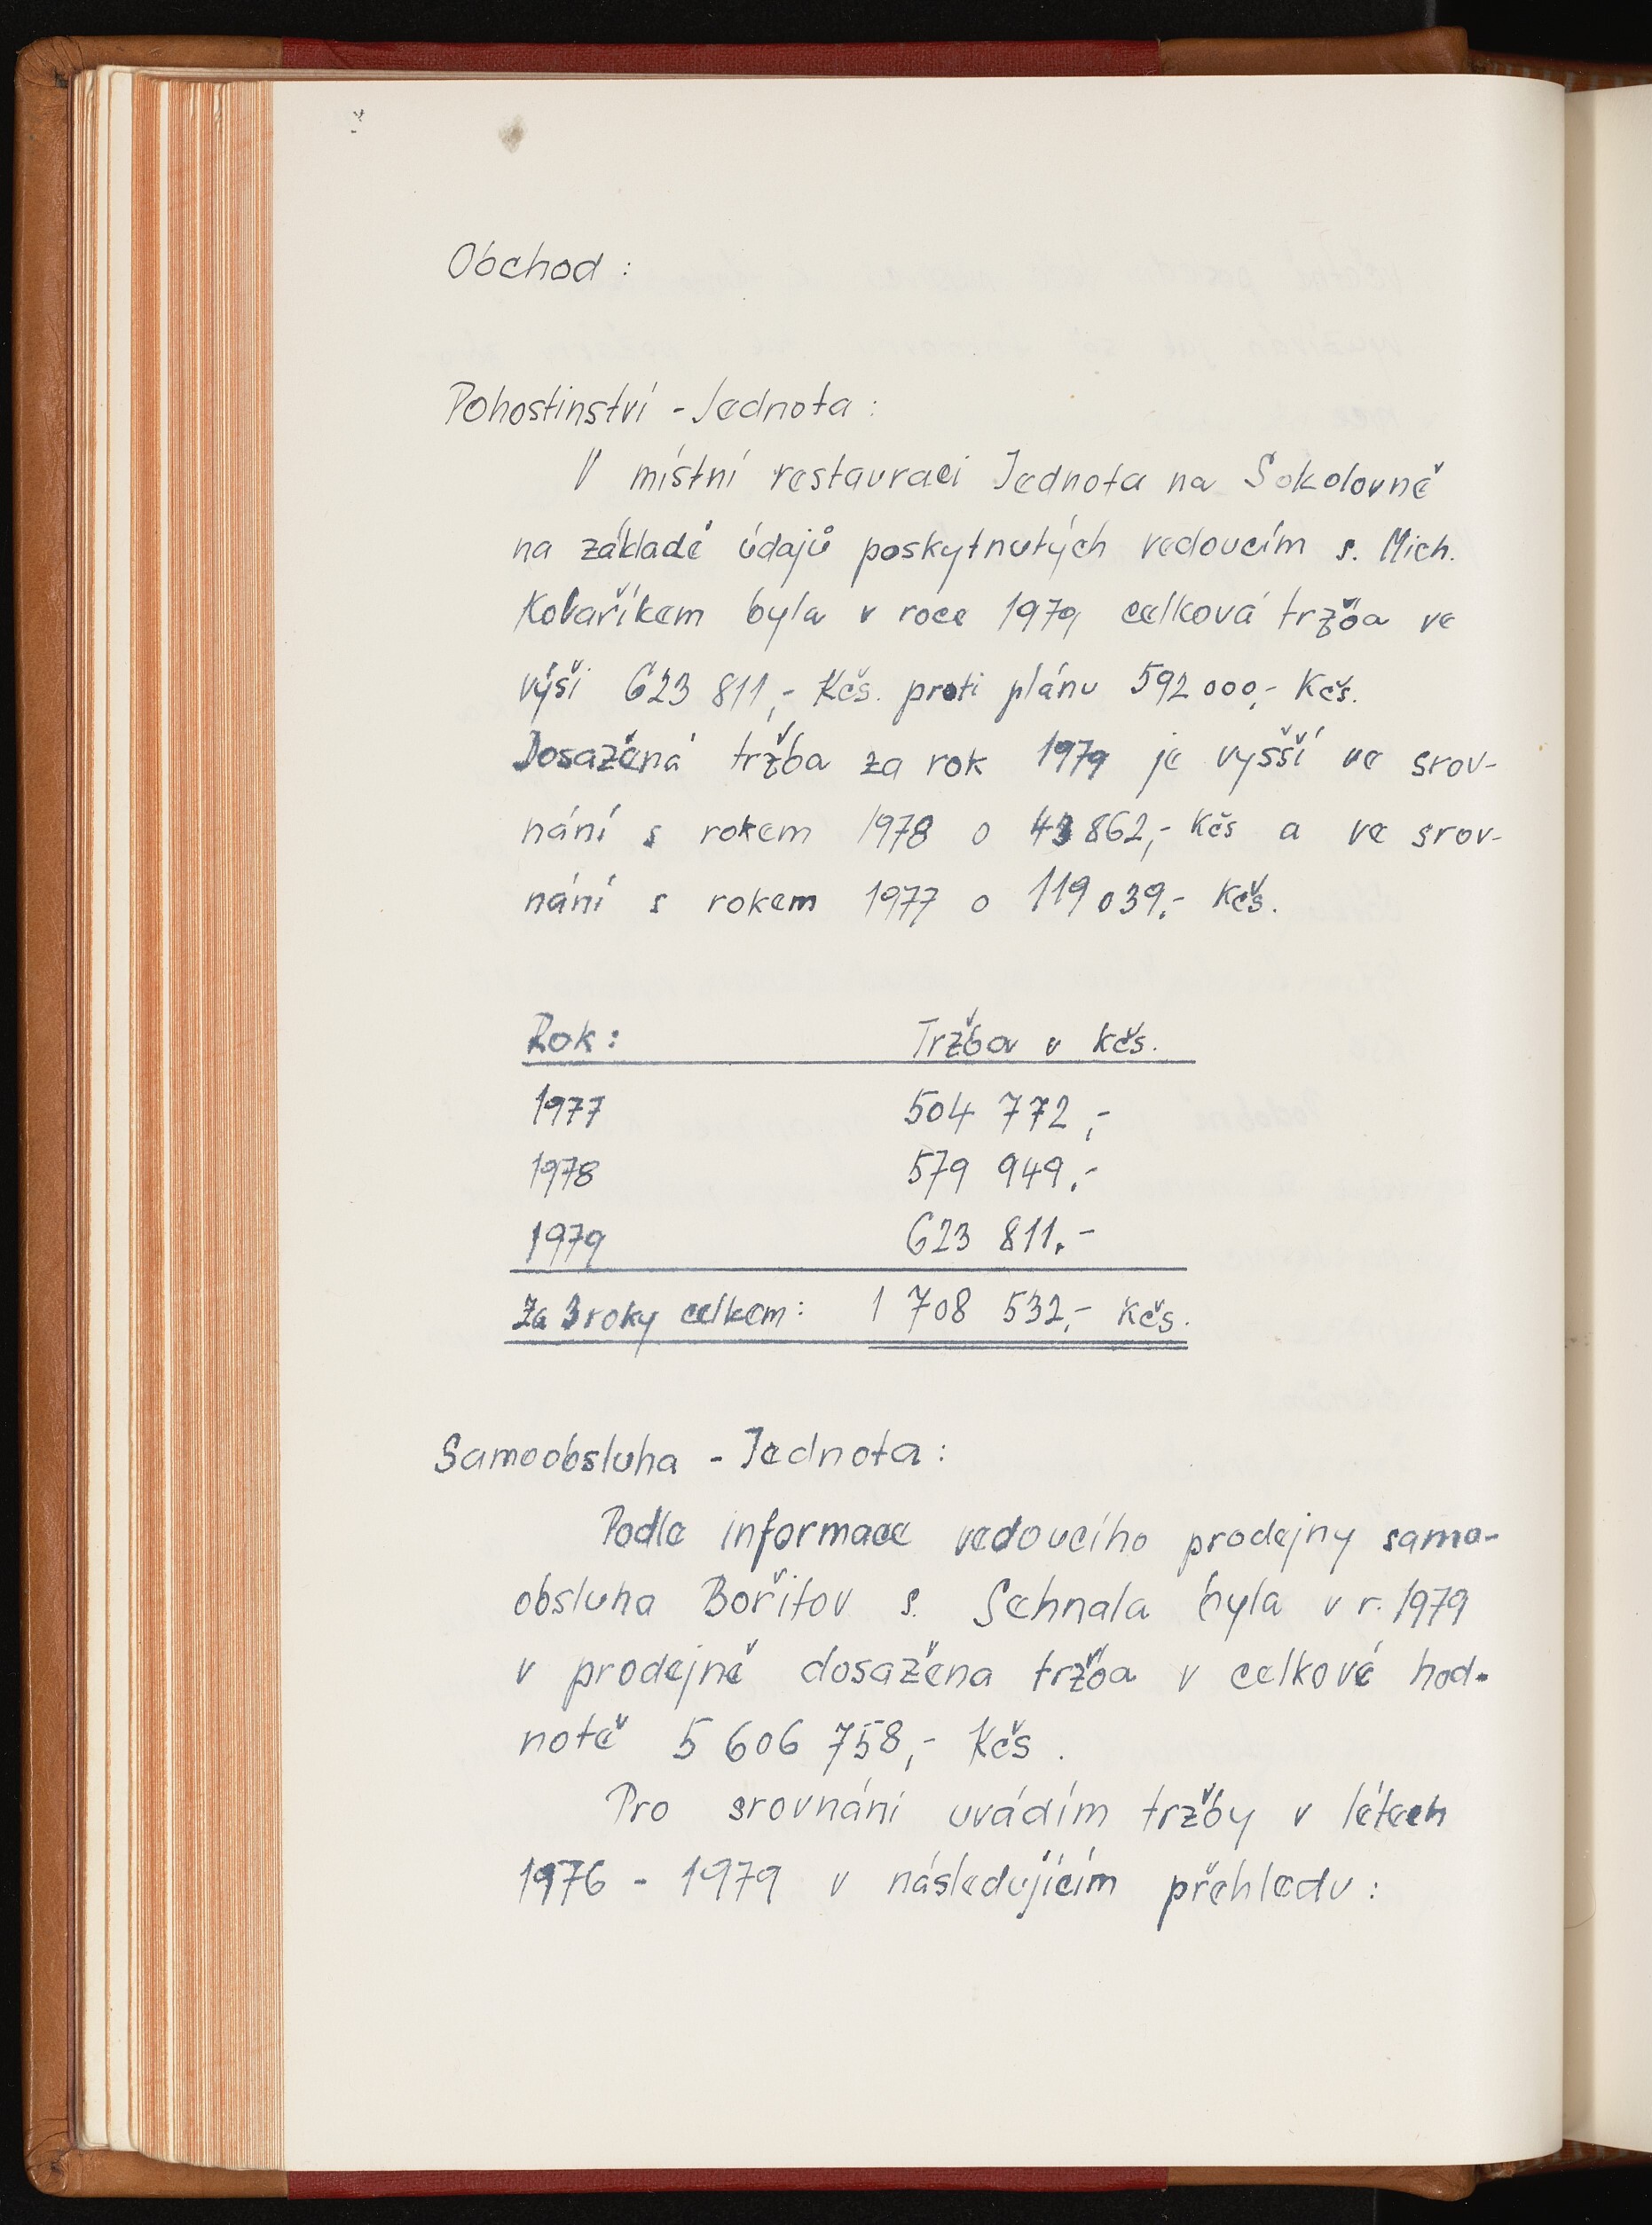 Obchod :
Pohostinství - Jednota :
V místní restauraci Jednota na Sokolovně
na základě údajů poskytnutých vedoucím s. Mich.
Kovaříkem byla v roce 1979 celková tržba ve
výši 623 811,- Kčs. proti plánu 592 000,- Kčs.
Dosažená tržba za rok 1979 je vyšší ve srov-
nání s rokem 1978 o 43 862,- Kčs a ve srov-
nání s rokem 1977 o 119 039,- Kčs.
Rok : Tržba v Kčs.
1977 504 772,-
1978 579 949,-
1979 623 811,-
Za 3 roky celkem : 1 708 532,- Kčs.
Samoobsluha - Jednota :
Podle informace vedoucího prodejny samo-
obsluha Bořitov s. Sehnala byla v r. 1979
v prodejně dosažena tržba v celkové hod-
notě 5 606 758,- Kčs .
Pro srovnání uvádím tržby v létech
1976 - 1979 v následujícím přehledu :